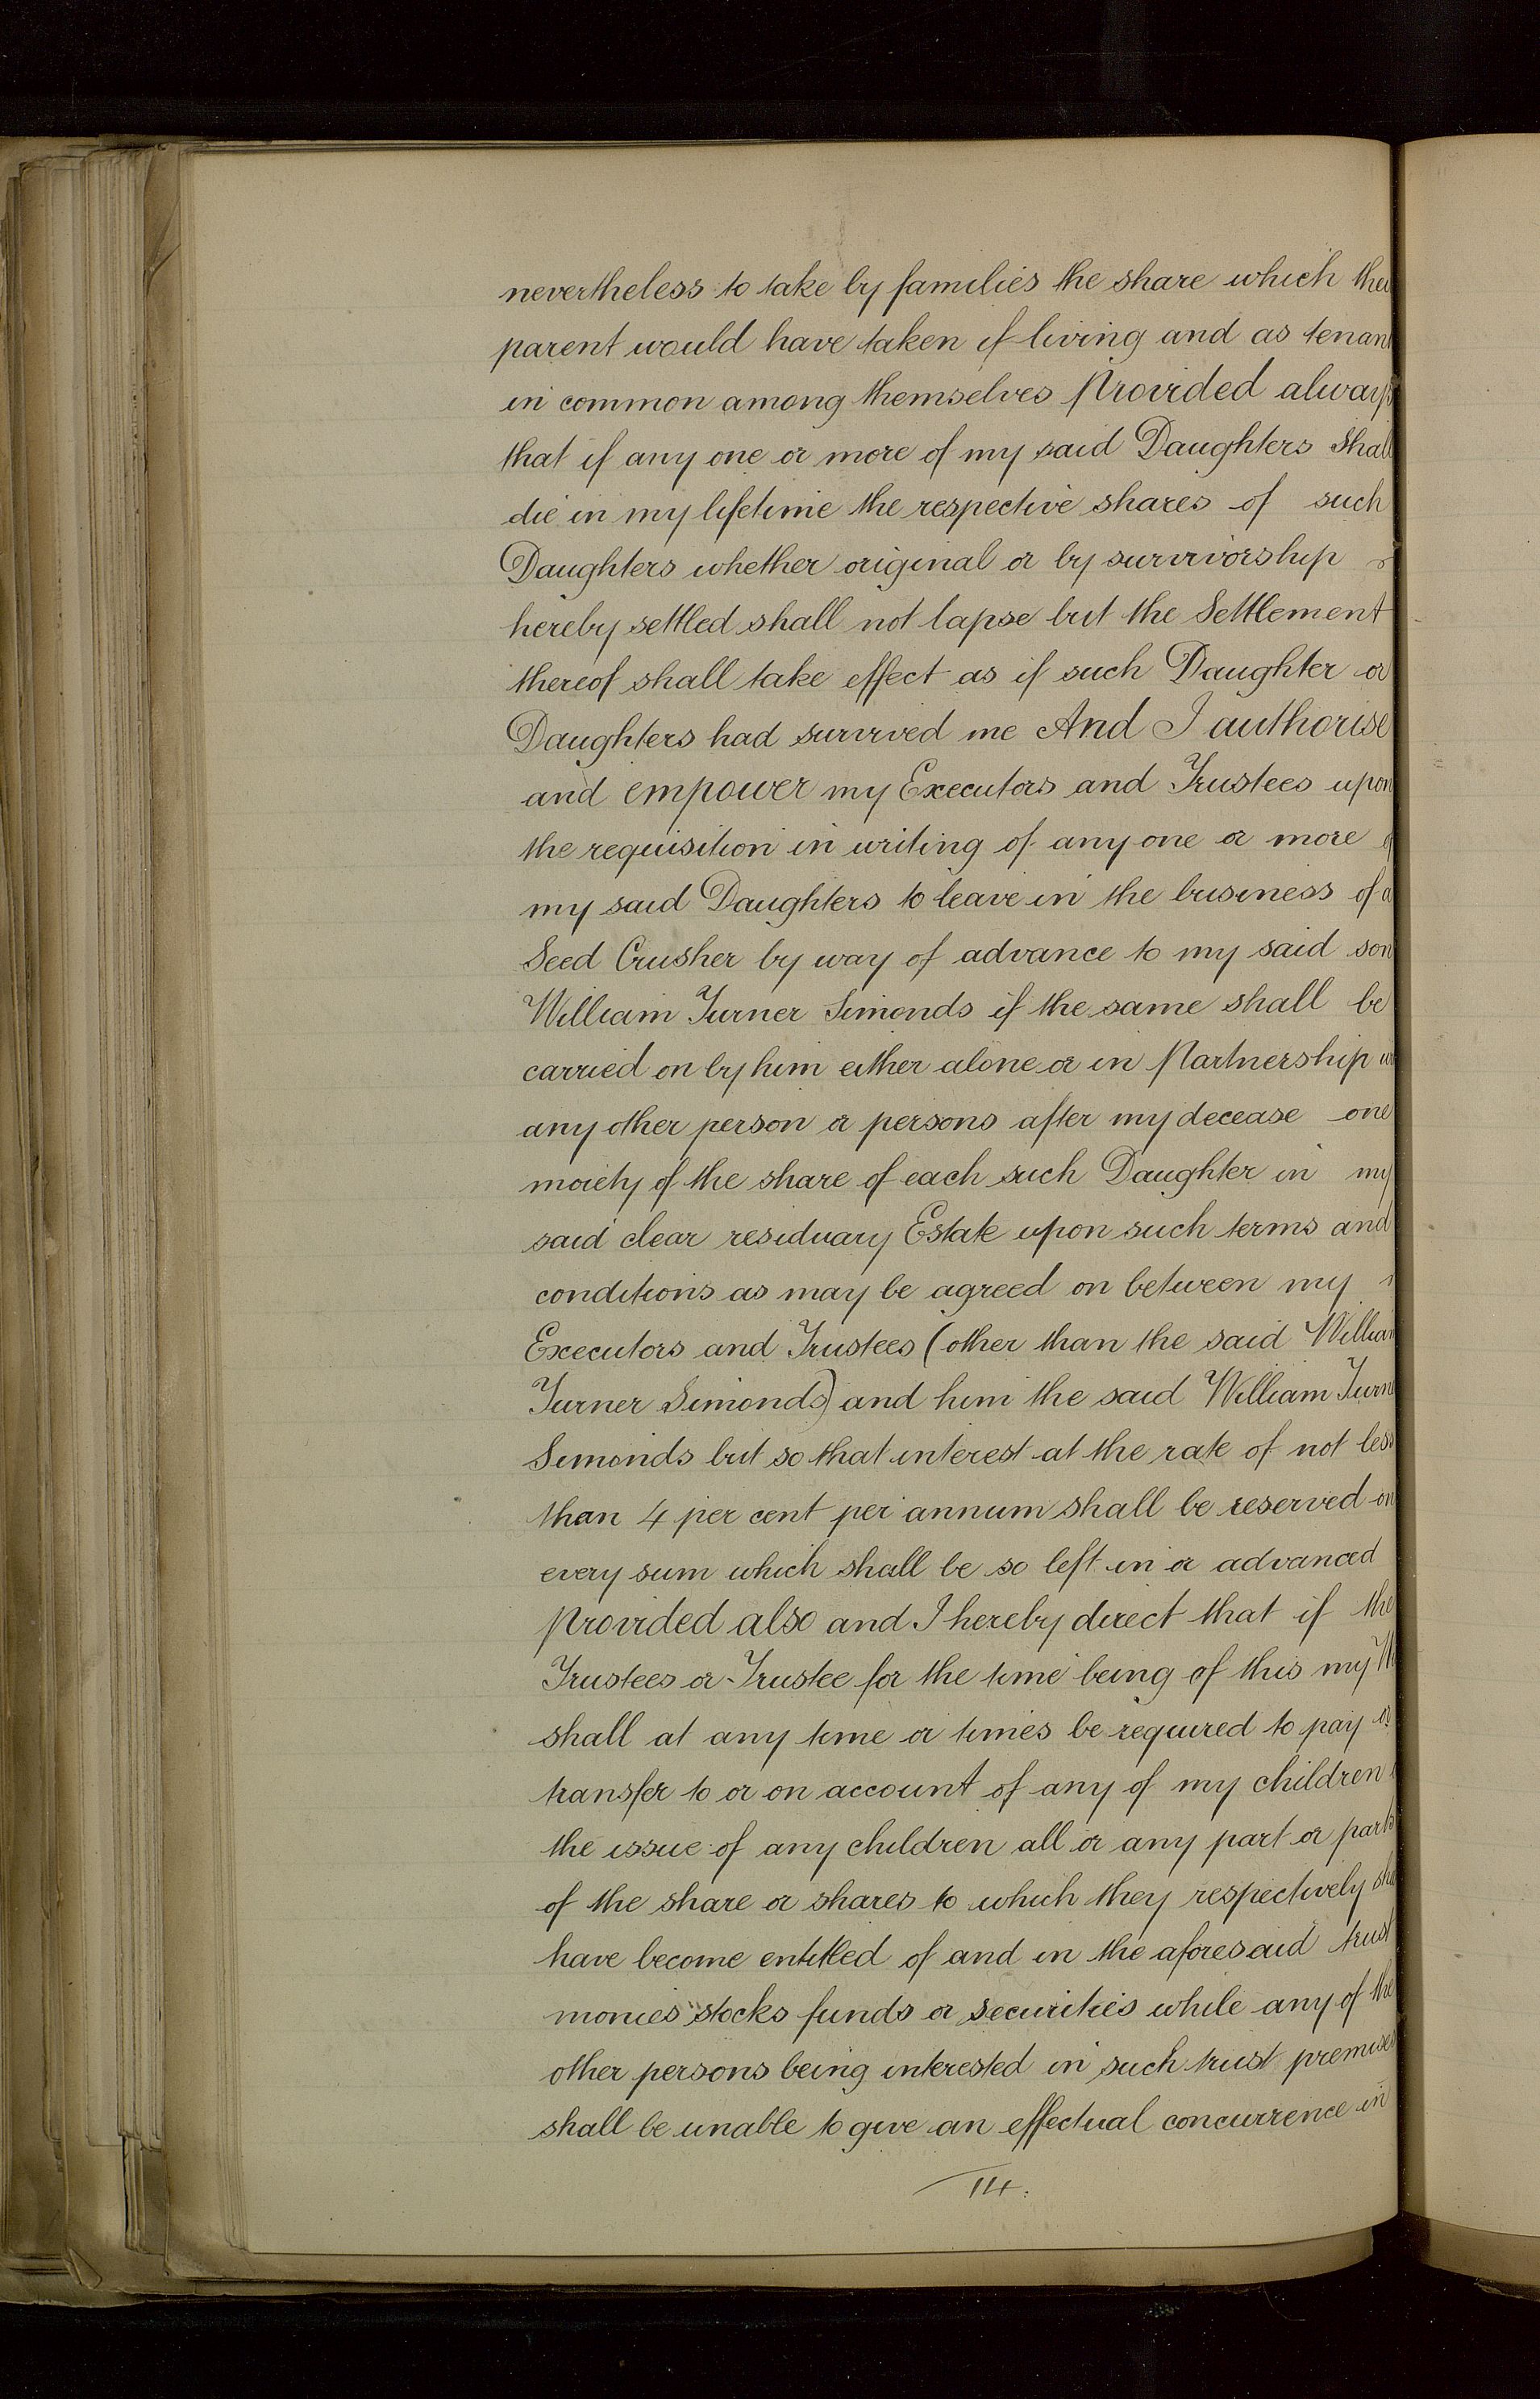 nevertheless to take by families the share which thei
parent would have taken if living and as tenant
in common among themselves Provided always
that if any one or more of my said Daughters shall
die in my lifetime the respective shares of such
Daughters whether original or by survivorship
hereby settled shall not lapse but the Settlement
thereof shall take effect as if such Daughter or
Daughters had survived me And I authorise
and empower my Executors and Trustees upon
the requisition in writing of any one or more of
my said Daughters to leave in the business of a
Seed Crusher by way of advance to my said son
William Turner Simonds if the same shall be
carried on by him either alone or in Partnership
any other person or persons after my decease one
moiety of the share of each such Daughter in my
said clear residuary Estate upon such terms and
conditions as may be agreed on between my
Executors and Trustees (other than the said William
Turner Simonds) and him the said William Turne
Simonds but so that interest at the rate of not less
than 4 per cent per annum shall be reserved on
every sum which shall be so left in or advanced
Provided also and I hereby direct that if the
Trustees or Trustee for the time being of this my
shall at any time or times be required to pay or
transfer to or on account of any of my children
the issue of any children all or any part or parts
of the share or shares to which they respectively sha
have become entitled of and in the aforesaid trust
monies stocks funds or securities while any of the
other persons being interested in such trust premises
shall be unable to give an effectual concurrence in
14.